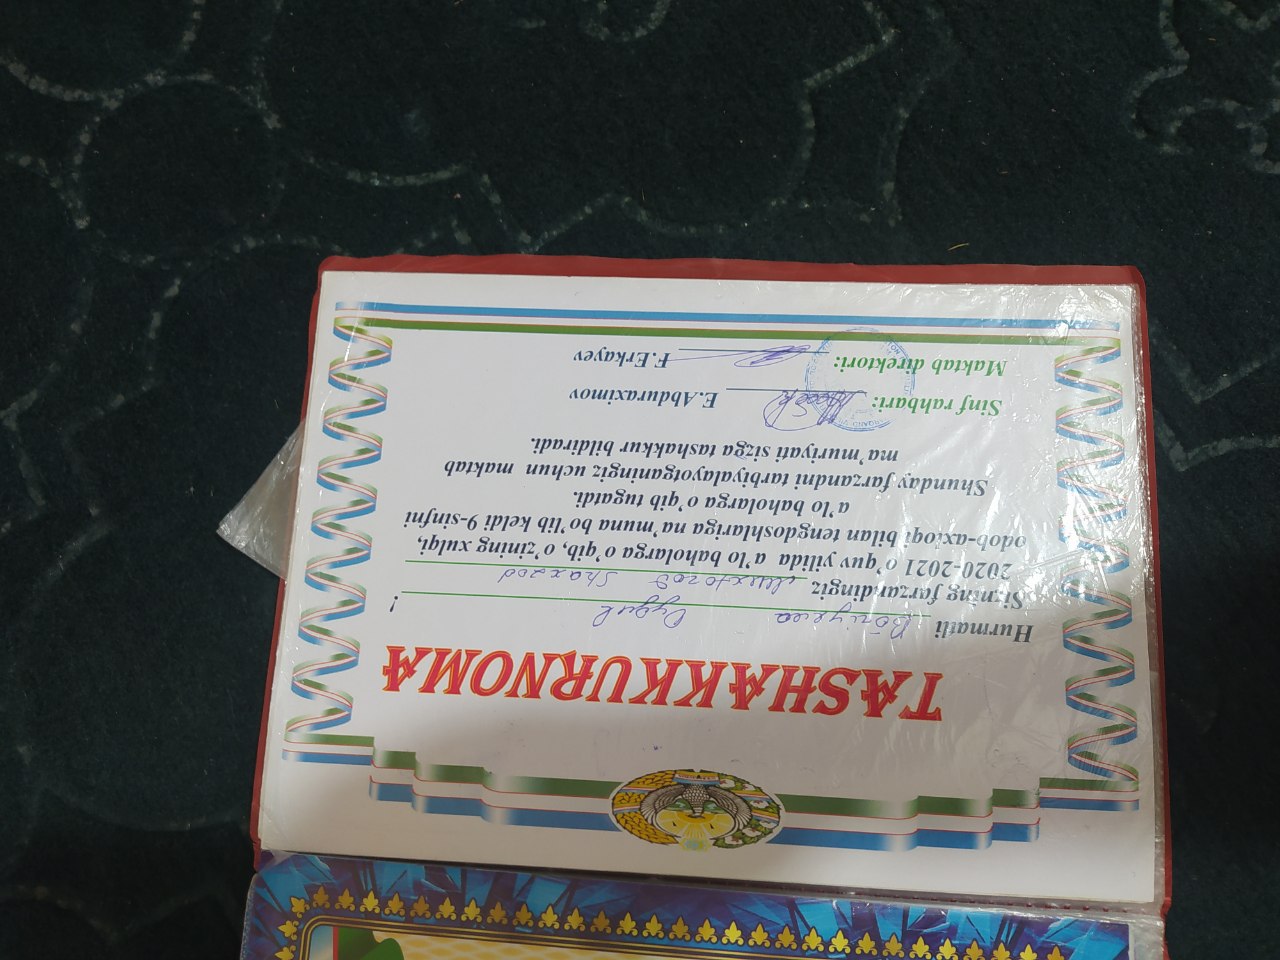 TASHAKKURNOMA
Hurmatli !
Sizning farzandingiz Muxtorov Shaxzod
2020-2021 o'quv yilida a'lo baholarga o'qib, o'zining xulqi,
odob-axloqi bilan tengdoshlariga na'muna bo'lib keldi 9-sinfni
a'lo baholarga o'qib tugatdi.
Shunday farzandni tarbiyalayotganingiz uchun maktab
ma'muriyati sizga tashakkur bildiradi.
Sinf rahbari: E.Abduraximov
Maktab direktori: F.Erkayev